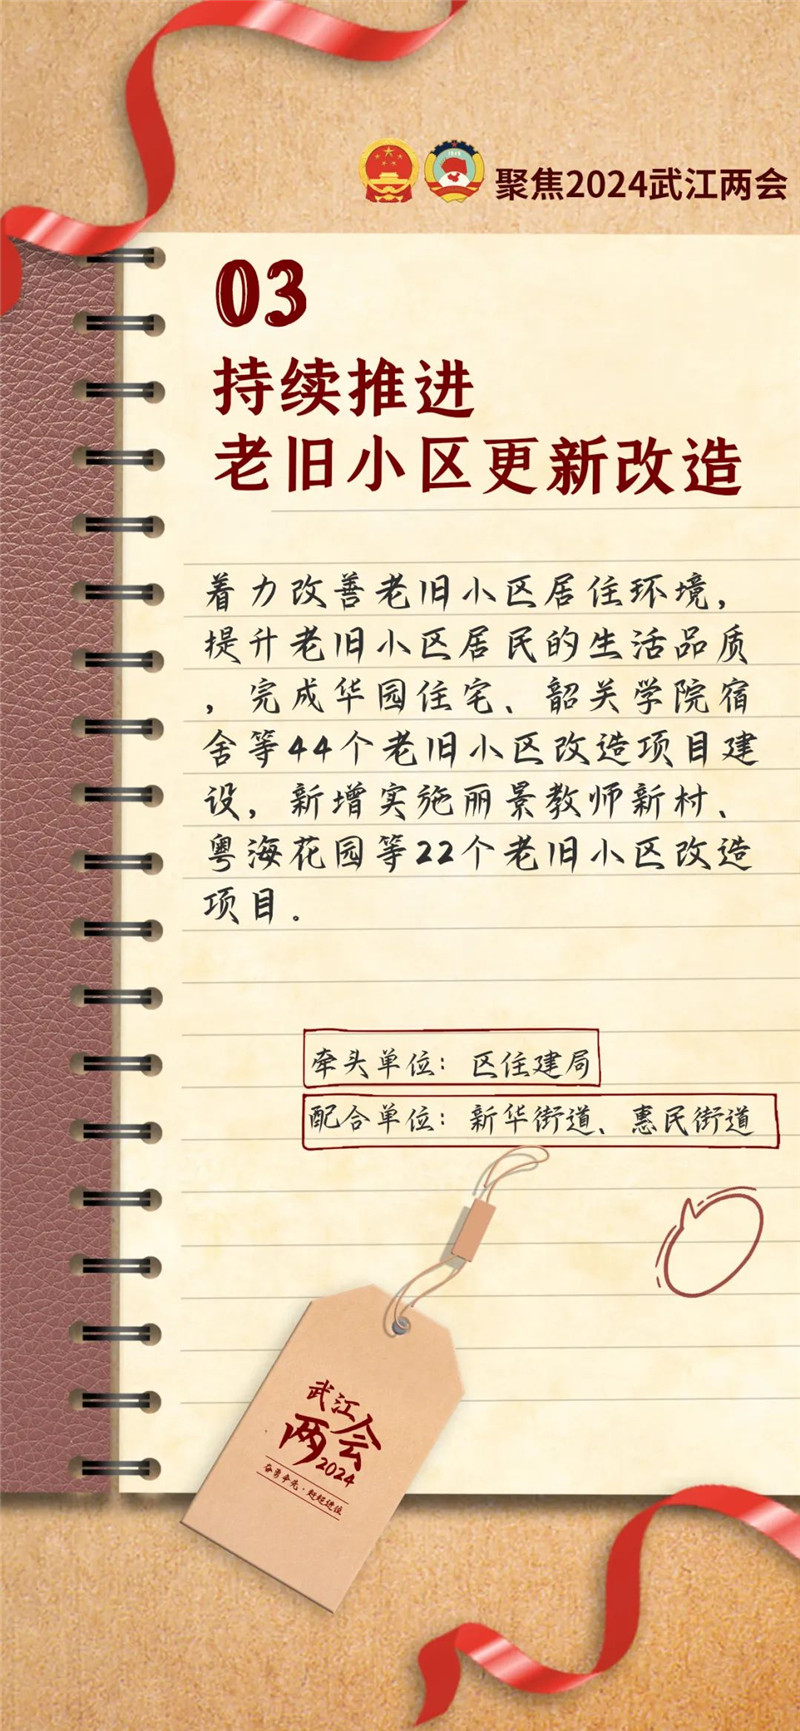 聚焦2024武江两会
03
持续推进
老旧小区更新改造
着力改善老旧小区居住环境，
提升老旧小区居民的生活品质
，完成华园住宅、韶关学院宿
舍等44个老旧小区改造项目建
设，新增实施丽景教师新村、
粤海花园等22个老旧小区改造
项目。
牵头单位：区住建局
配合单位：新华街道、惠民街道
武江
两会
2024
奋勇争先·赶超进位